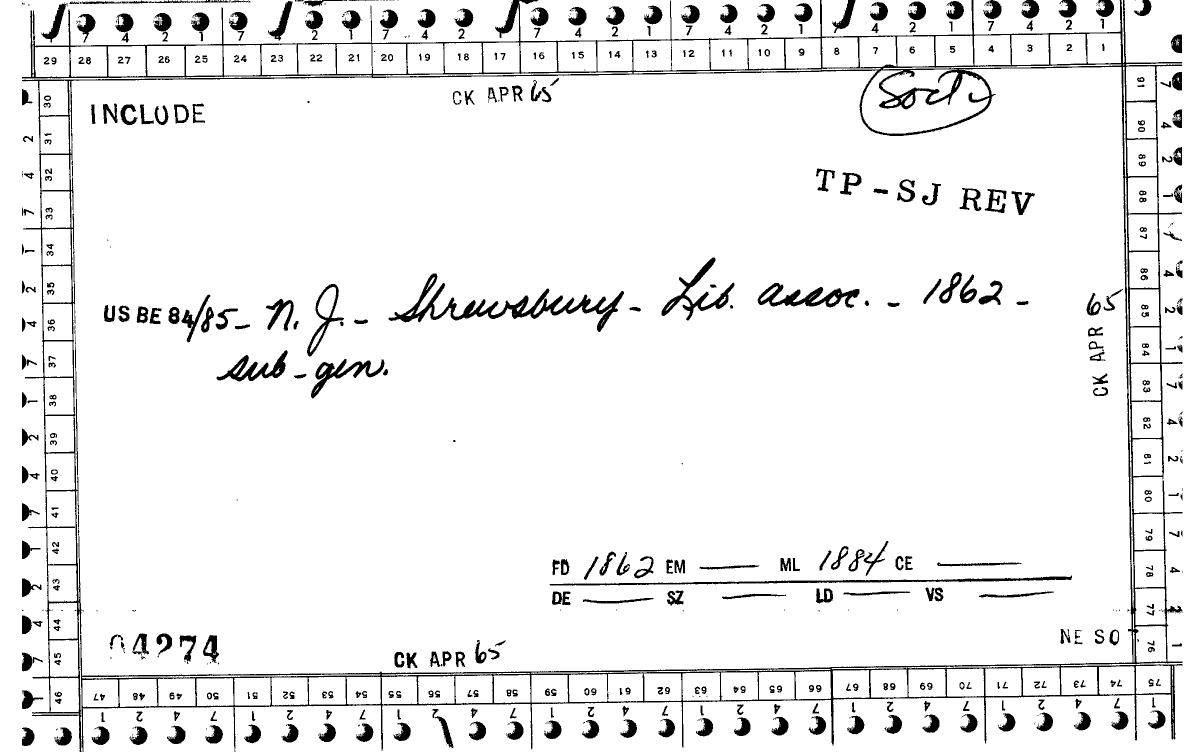 7 4 2 1 7 4 2 1 7 4 2 1 7 4 2 1 7 4 2 1 7 4 2 1
29 28 27 26 25 24 23 22 21 20 19 18 17 16 15 14 13 12 11 10 9 8 7 6 5 4 3 2 1
CK APR 65
INCLUDE
TP-SJ REV
US BE 84/85- N. J. - Shrewsbury - Lib. assoc. - 1862 -
sub-gen.
CK APR 65
FD 1862 EM —— ML 1884 CE ——
DE —— SZ —— LD —— VS ——
NE SO
04274
CK APR 65
30 31 32 33 34 35 36 37 38 39 40 41 42 43 44 45 46
91 90 89 88 87 86 85 84 83 82 81 80 79 78 77 76 75
47 48 49 50 51 52 53 54 55 56 57 58 59 60 61 62 63 64 65 66 67 68 69 70 71 72 73 74 75